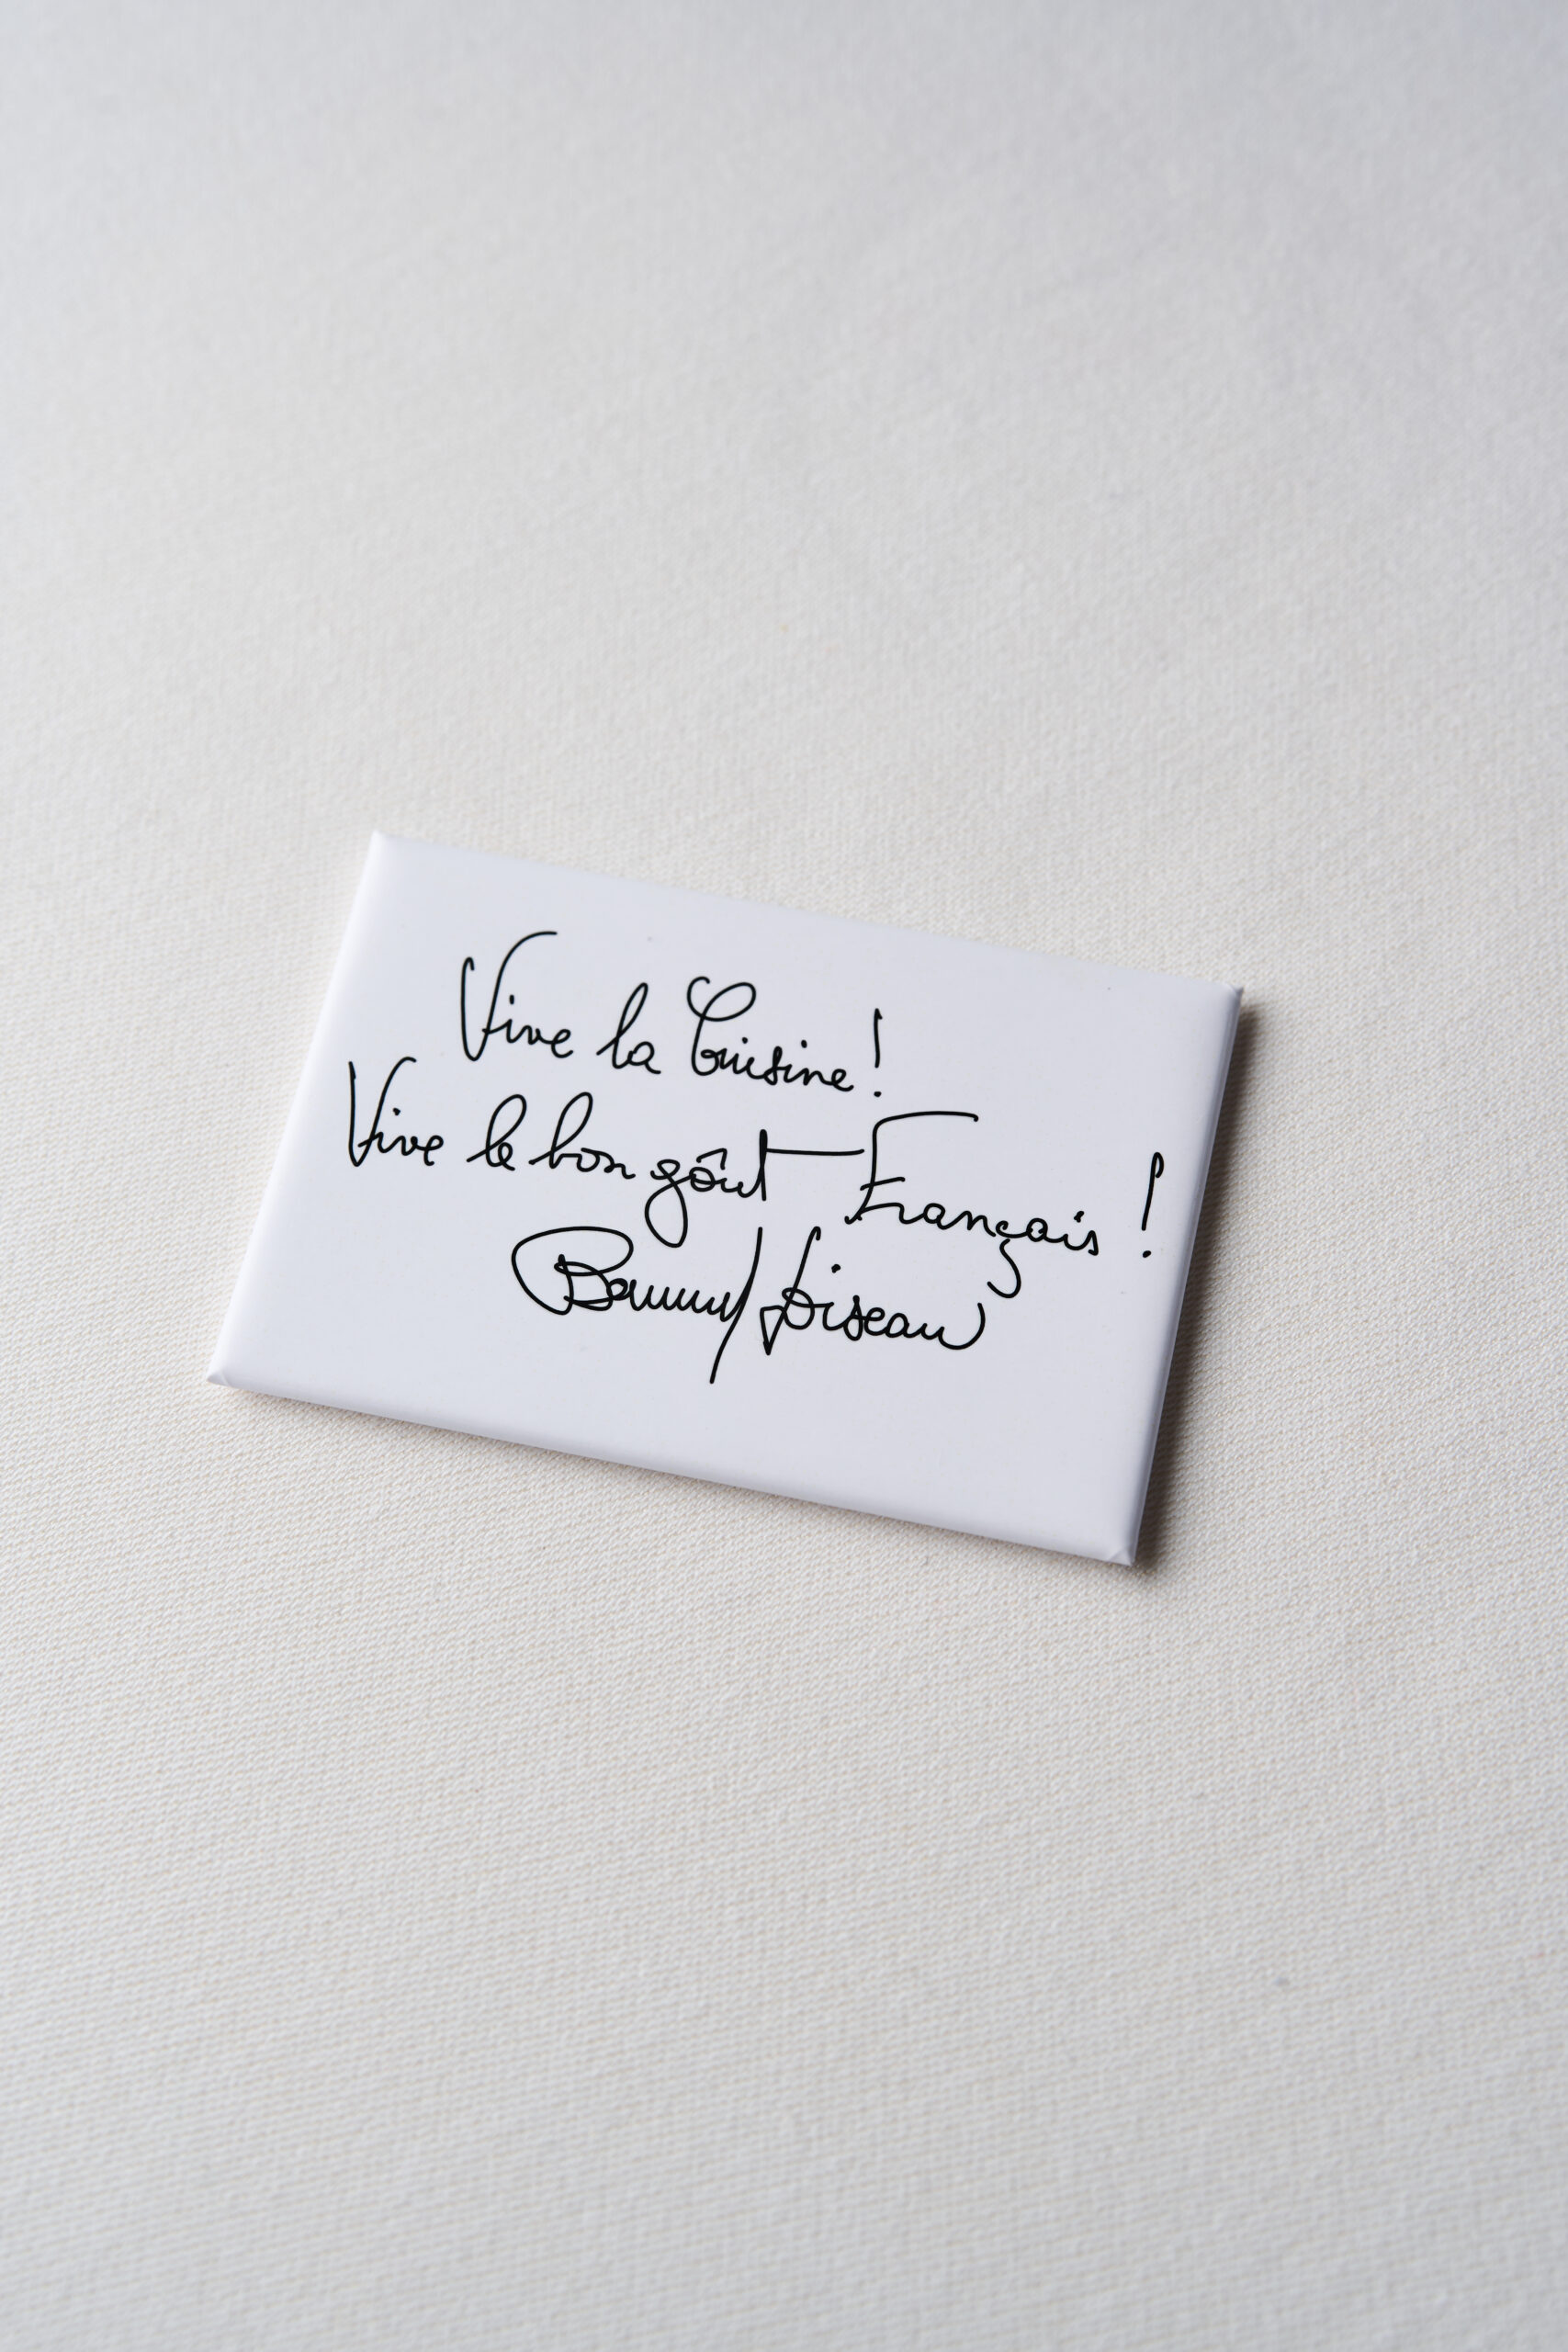 Vive la Cuisine !
Vive le bon goût Français !
Bernard Loiseau